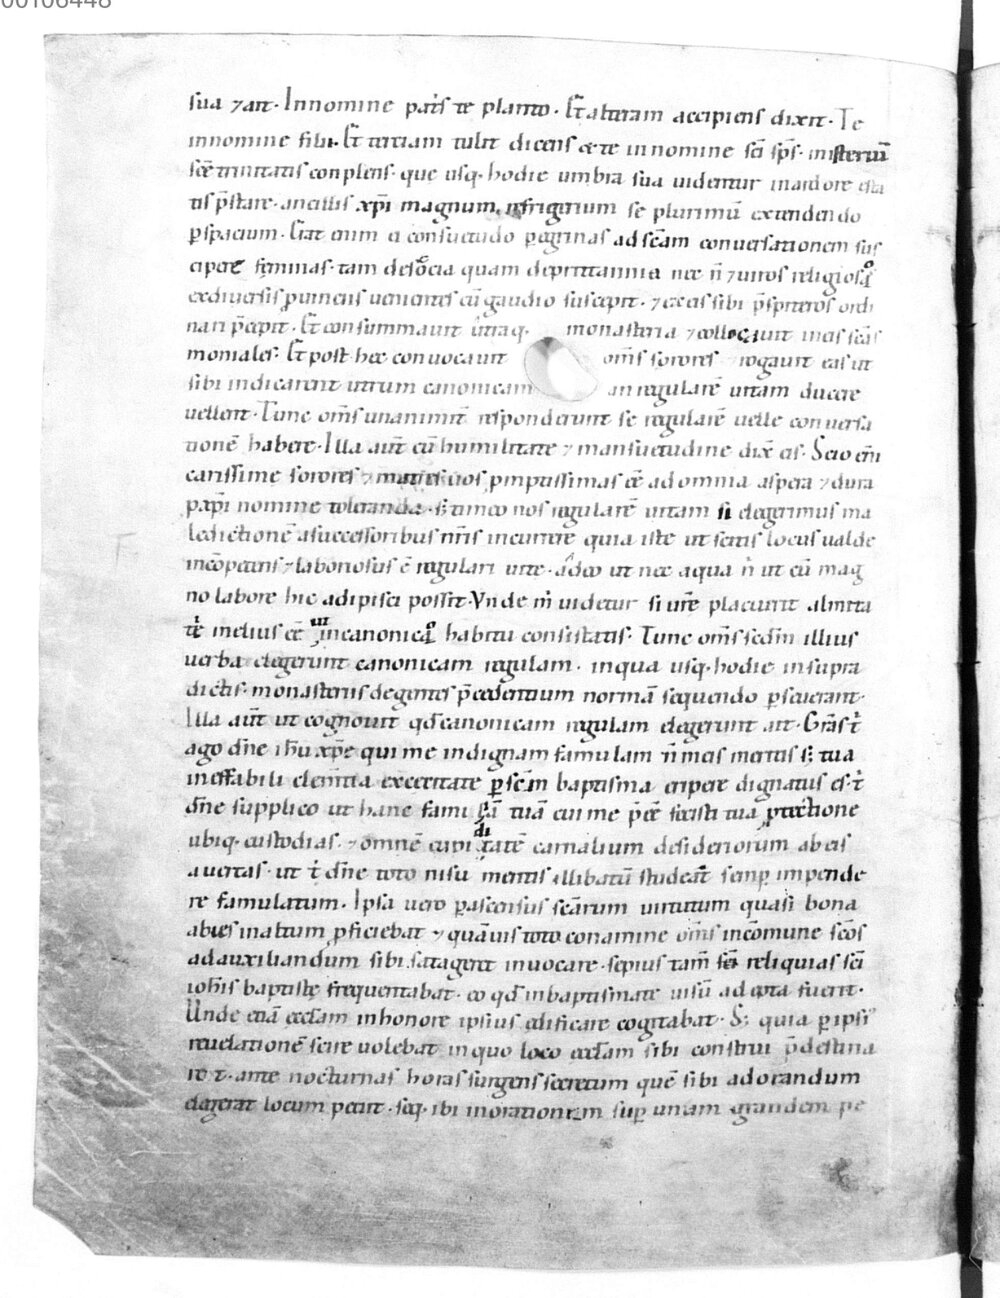 00106448
sua ⁊ait. Innomine pat̄s te planto. Et̄ alteram accipiens dixit. Te
innomine filii. Et̄ tertiam tulit dicens ⁊te innomine sc̄i sp̄s. misteriū
sc̄e trinitatis conplens. que usq; hodie umbra sua uidentur inardore esta
tis p̄stare. ancillis xp̄i magnum refrigerium se plurimū extendendo
p̄spacium. Erat enim ei consuetudo peregrinas ad sc̄am conuersationem sus
cipere feminas. tam descocia quam deprittannia nec n̄ ⁊uiros religiosos
exdiuersis puinciis uenientes cū gaudio suscepit. ⁊exeis sibi p̄spiteros ordi
nari p̄cepit. Et̄ consummauit utraq; monasteria ⁊collocauit ineis sc̄as
moniales. Et̄ post hec conuocauit om̄s sorores ⁊rogauit eas ut
sibi indicarent utrum canonicam an regularē uitam ducere
uellent. Tunc om̄s unanimit̄ responderunt se regularē uelle conuersa
tionē habere. Illa aut̄ cū humilitate ⁊ mansuetudine dix̄ eis. Scio eni
carissime sorores ⁊ matres uos pmptissimas eē ad omnia aspera ⁊dura
p xp̄i nomine toleranda. s; timeo nos regularē uitam si elegerimus ma
ledictionē asuccessoribus nr̄is incurrere quia iste ut scitis locus ualde
incōpetens ⁊laboriosus ē regulari uite. adeo ut nec aqua n̄ ut cū mag
no labore hic adipisci possit. Vnde m̄ uidetur si ur̄e placuerit almita
ti melius eē ut incanonico habitu consistatis. Tunc om̄s scdm̄ illius
uerba elegerunt canonicam regulam. inqua usq; hodie insupra
dictis. monasteriis degentes p̄cedentium normā sequendo p̄seuerant.
Illa aut̄ ut cognouit qd̄ canonicam regulam elegerunt ait. Grās t̄
ago dn̄e ih̄u xp̄e qui me indignam famulam n̄ meis meritis s; tua
ineffabili clemtia excecitate p̄ sc̄m baptisma eripere dignatus es. t̄
dn̄e supplico ut hanc famulā tuā cui me p̄eē fecisti tua ptectione
ubiq; custodias. ⁊omnē cupiditatē carnalium desideriorum abeis
auertas. ut t̄ dn̄e toto nisu mentis illibatū studeat semp impende
re famulatum. Ipsa uero p ascensus sc̄arum uirtutum quasi bona
abies inaltum pficiebat ⁊ quāuis toto conamine om̄s incōmune sc̄os
ad auxiliandum sibi satageret inuocare. sepius tam̄ sc̄i reliquias sc̄i
ioh̄is baptiste frequentabat. eo qd̄ inbaptismate uisū adepta fuerit.
Unde etiā eccl̄am inhonore ipsius edificare cogitabat. S; quia p ipsi'
reuelationē scire uolebat inquo loco eccl̄am sibi construi p̄destina
re t̄. ante nocturnas horas surgens secretum quē sibi adorandum
elegerat locum petiit. seq; ibi inorationem sup unam grandem pe